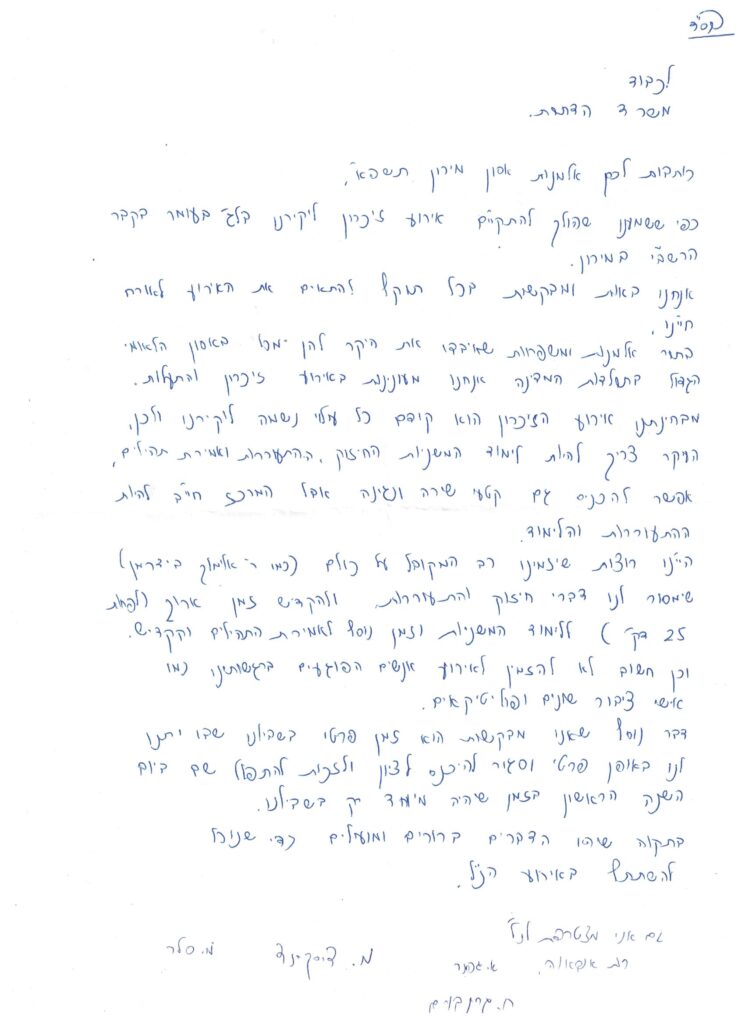 בס"ד
לכבוד
משרד הדתות.
כותבות לכם אלמנות אסון מירון תשפא",
כפי ששמענו שהולך להתקיים אירוע זיכרון ליקירנו בלג" בעומר בקבר
הרשב"י במירון.
אנחנו באות ומבקשות בכל תוקף להתאים את האירוע לאורח
חיינו,
בתור אלמנות ומשפחות שאיבדו את היקר להן מכל באסון הלאומי
הגדול בתולדות המדינה אנחנו מעונינות באירוע זיכרון והתעלות.
מבחינתנו אירוע הזיכרון הוא קודם כל עלוי נשמה ליקירנו ולכן,
העיקר צריך להיות לימוד המשניות החיזוק, ההתעוררות ואמירת תהילים,
אפשר להכניס גם קטעי שירה ונגינה אבל המרכז חייב להיות
ההתעוררות והלימוד.
היינו רוצות שיזמינו רב המקובל על כולם (כמו ר' אלימלך בידרמן)
שימסור לנו דברי חיזוק והתעוררות, ולהקדיש זמן ארוך (לפחות
25 דק') ללימוד המשניות וזמן נוסף לאמירת התהילים וקדיש.
וכן חשוב לא להזמין לאירוע אנשים הפוגעים ברגשותינו כמו
אישי ציבור שונים ופוליטיקאים.
דבר נוסף שאנו מבקשות הוא זמן פרטי בשבילנו שבו יתנו
לנו באופן פרטי וסגור להיכנס לציון ולזכות להתפלל שם ביום
השנה הראשון בזמן שיהיה מיועד רק בשבילנו.
בתקוה שיהיו הדברים ברורים ומועילים כדי שנוכל
להשתתף באירוע הנ"ל.
גם אני מצטרפת לנ"ל
מ. דיסקינד
מ. סלר